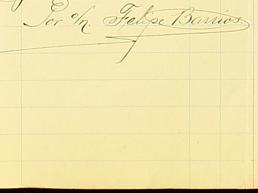 Por o/n. Felipe Barrios